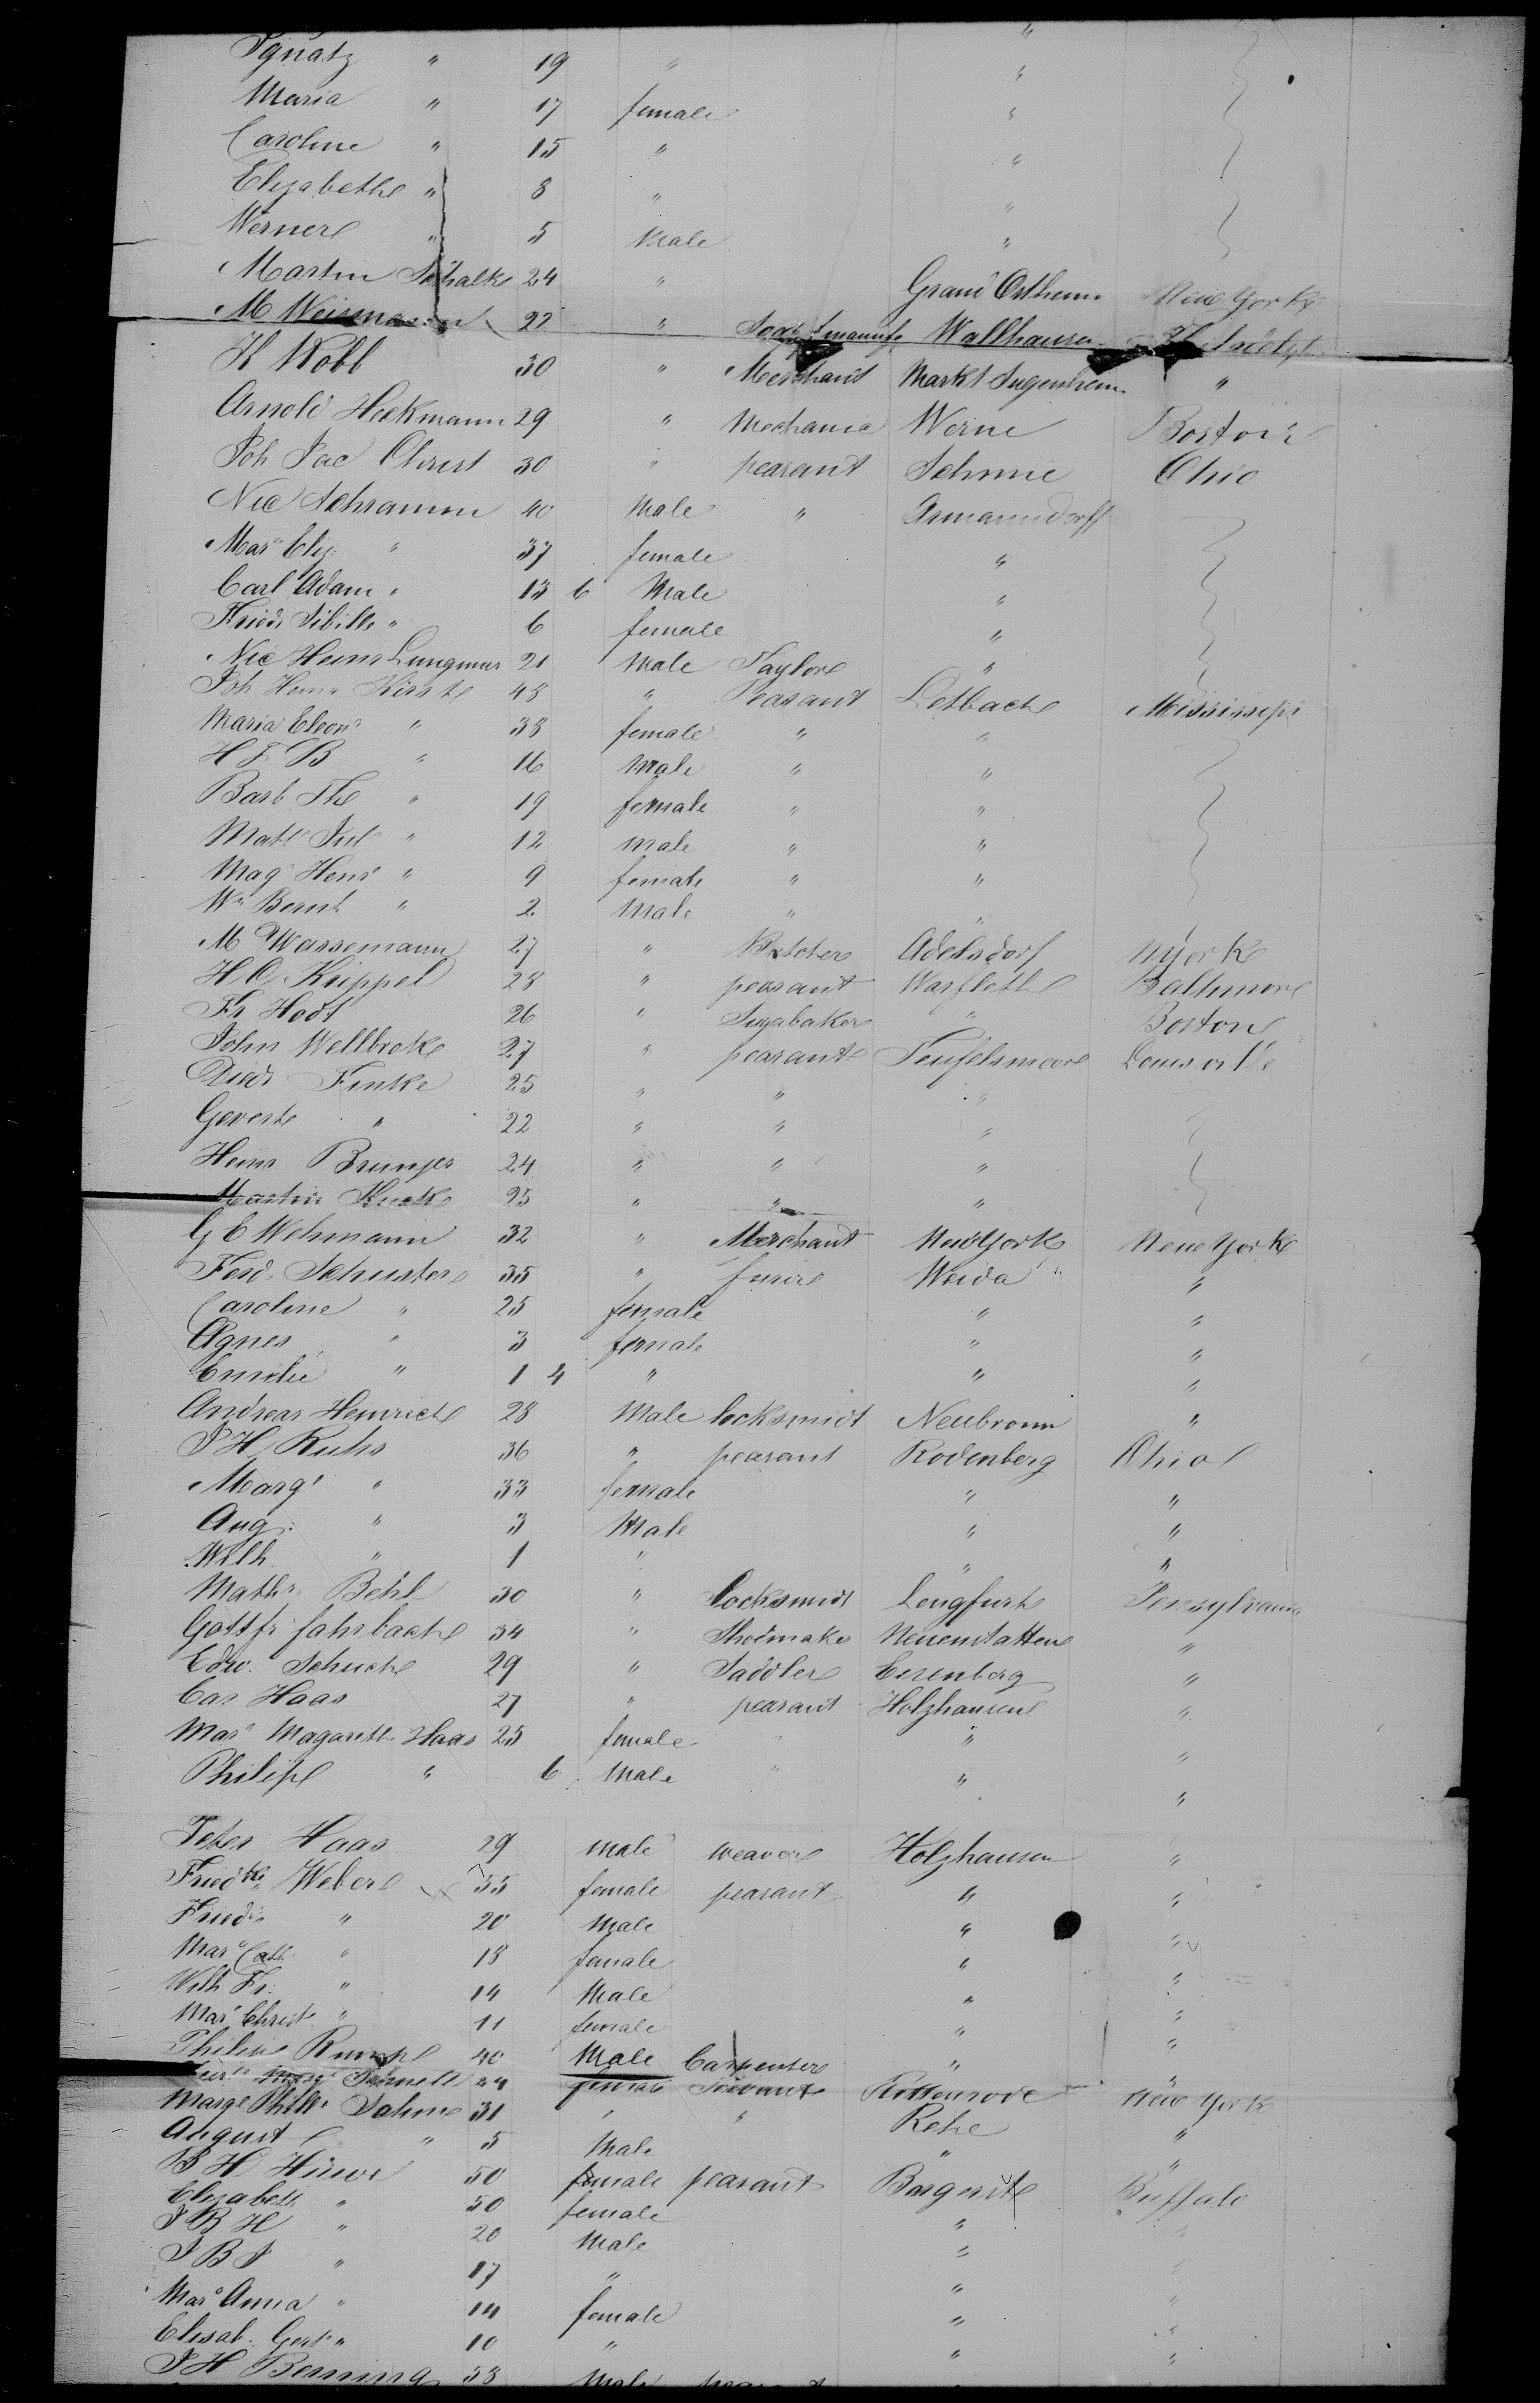 Ignatz " 19 " "
Maria " 17 female "
Caroline " 15 " "
Elizabethe " 8 " "
Werner " 5 Male "
Martin Schalk 24 " Grand Ostheim New York
M Weismann 22 " Wallhausen
K Wobb 30 " Merchant Markt Sugenheim "
Arnold Heekmann 29 " Mechanic Werne Boston
Joh Jac Christ 30 " peasant Schmie Ohio
Nic Schramm 40 Male " Armanndorff
Mara Eliz: " 37 female "
Carl Adam " 13 6 Male "
Friedr Sibille " 6 female "
Nic Heinr Lungmus 21 Male Taylor "
Joh Heinr Kirste 48 " Peasant Lotbach Mississepi
Maria Eleonr " 38 female " "
H F B " 16 Male " "
Barb The " 19 female " "
Math Jul " 12 male " "
Mag Henr " 9 female " "
Wm Bernh " 2 Male " "
M Wassemann 27 " Butcher Adelsdorf NYork
H C Kuppel 28 " peasant Warfleth Baltimore
Fr Hodt 26 " Sugabaker " Boston
John Wellbrok 27 " peasant Teufelsmoor Louisville
Diedr Finke 25 " " "
Geversh " 22 " " "
Heinr Brunjes 24 " " "
Martin 25 " " "
G E Wehmann 32 " Merchant NewYork New York
Ferd. Schuster 35 " Weida "
Caroline " 25 female " "
Agnes " 3 female " "
Emilie " 1 4 " " "
Andreas Heinrich 28 Male locksmidt Neubronn "
J H Ruhs 36 " peasant Rodenberg Ohio
Margr " 33 female " "
Aug: " 3 Male " "
Wilh " 1 " " "
Mathr Behl 30 " locksmidt Lengfurt Pensylvania
Gottfr Fahrbach 34 " Shoemaker Neuenstatten "
Edw. Schuch 29 " Saddler Eisenberg "
Cas Haas 27 " peasant Holzhausen "
Mara Magareth Haas 25 female " " "
Philip " 6 Male " " "
Peter Haas 29 male weaver Holzhausen "
Friedke Weber 55 female peasant " "
Friedr " 20 Male " "
Mara Cath " 18 female " "
Wilh Fr: " 14 Male " "
Mar Christ " 11 female " "
Philip Rumpf 40 Male Carpenter " "
24 female Servant Rottenrode New York
Marge Philr Dahm 31 " " Rehe "
August " 5 Male " "
B H 50 male peasant Buffalo
Elizabeth " 50 female " "
J B H " 20 Male " "
J B J " 17 " " "
Mara Anna " 14 female " "
Elisab. Gert " 10 " " "
J H Benning 38 Male peasant